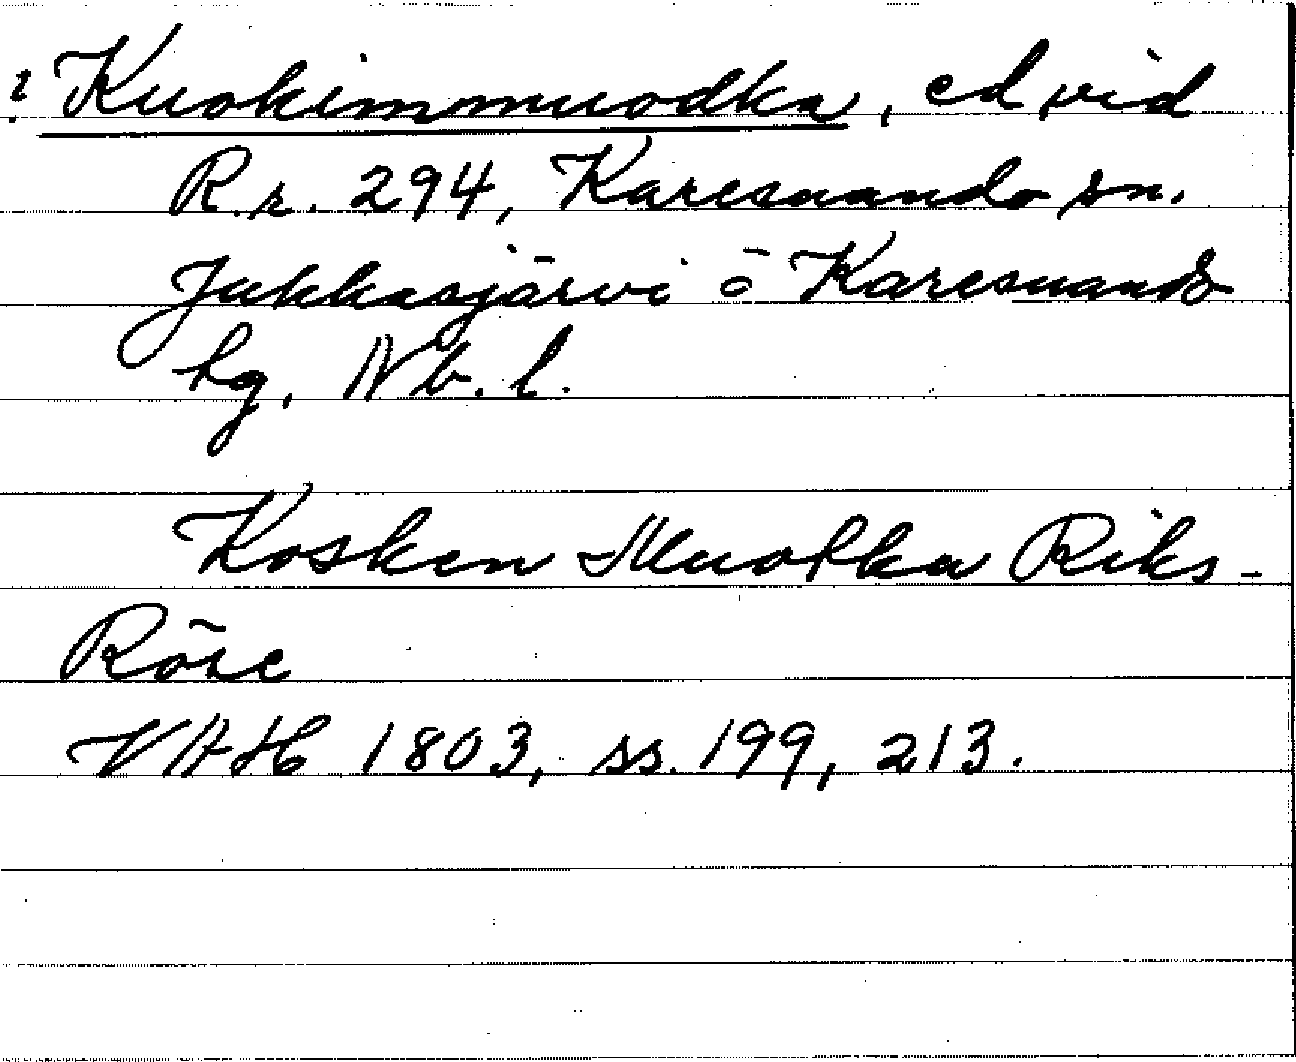 ? Kuokimomuodka, ed vid
R.r. 294, Karesuando sn.
Jukkasjärvi o Karesuando
lg, Nb. l.
Kosken Muotka Riks-
Röse
VAH 1803, ss. 199, 213.